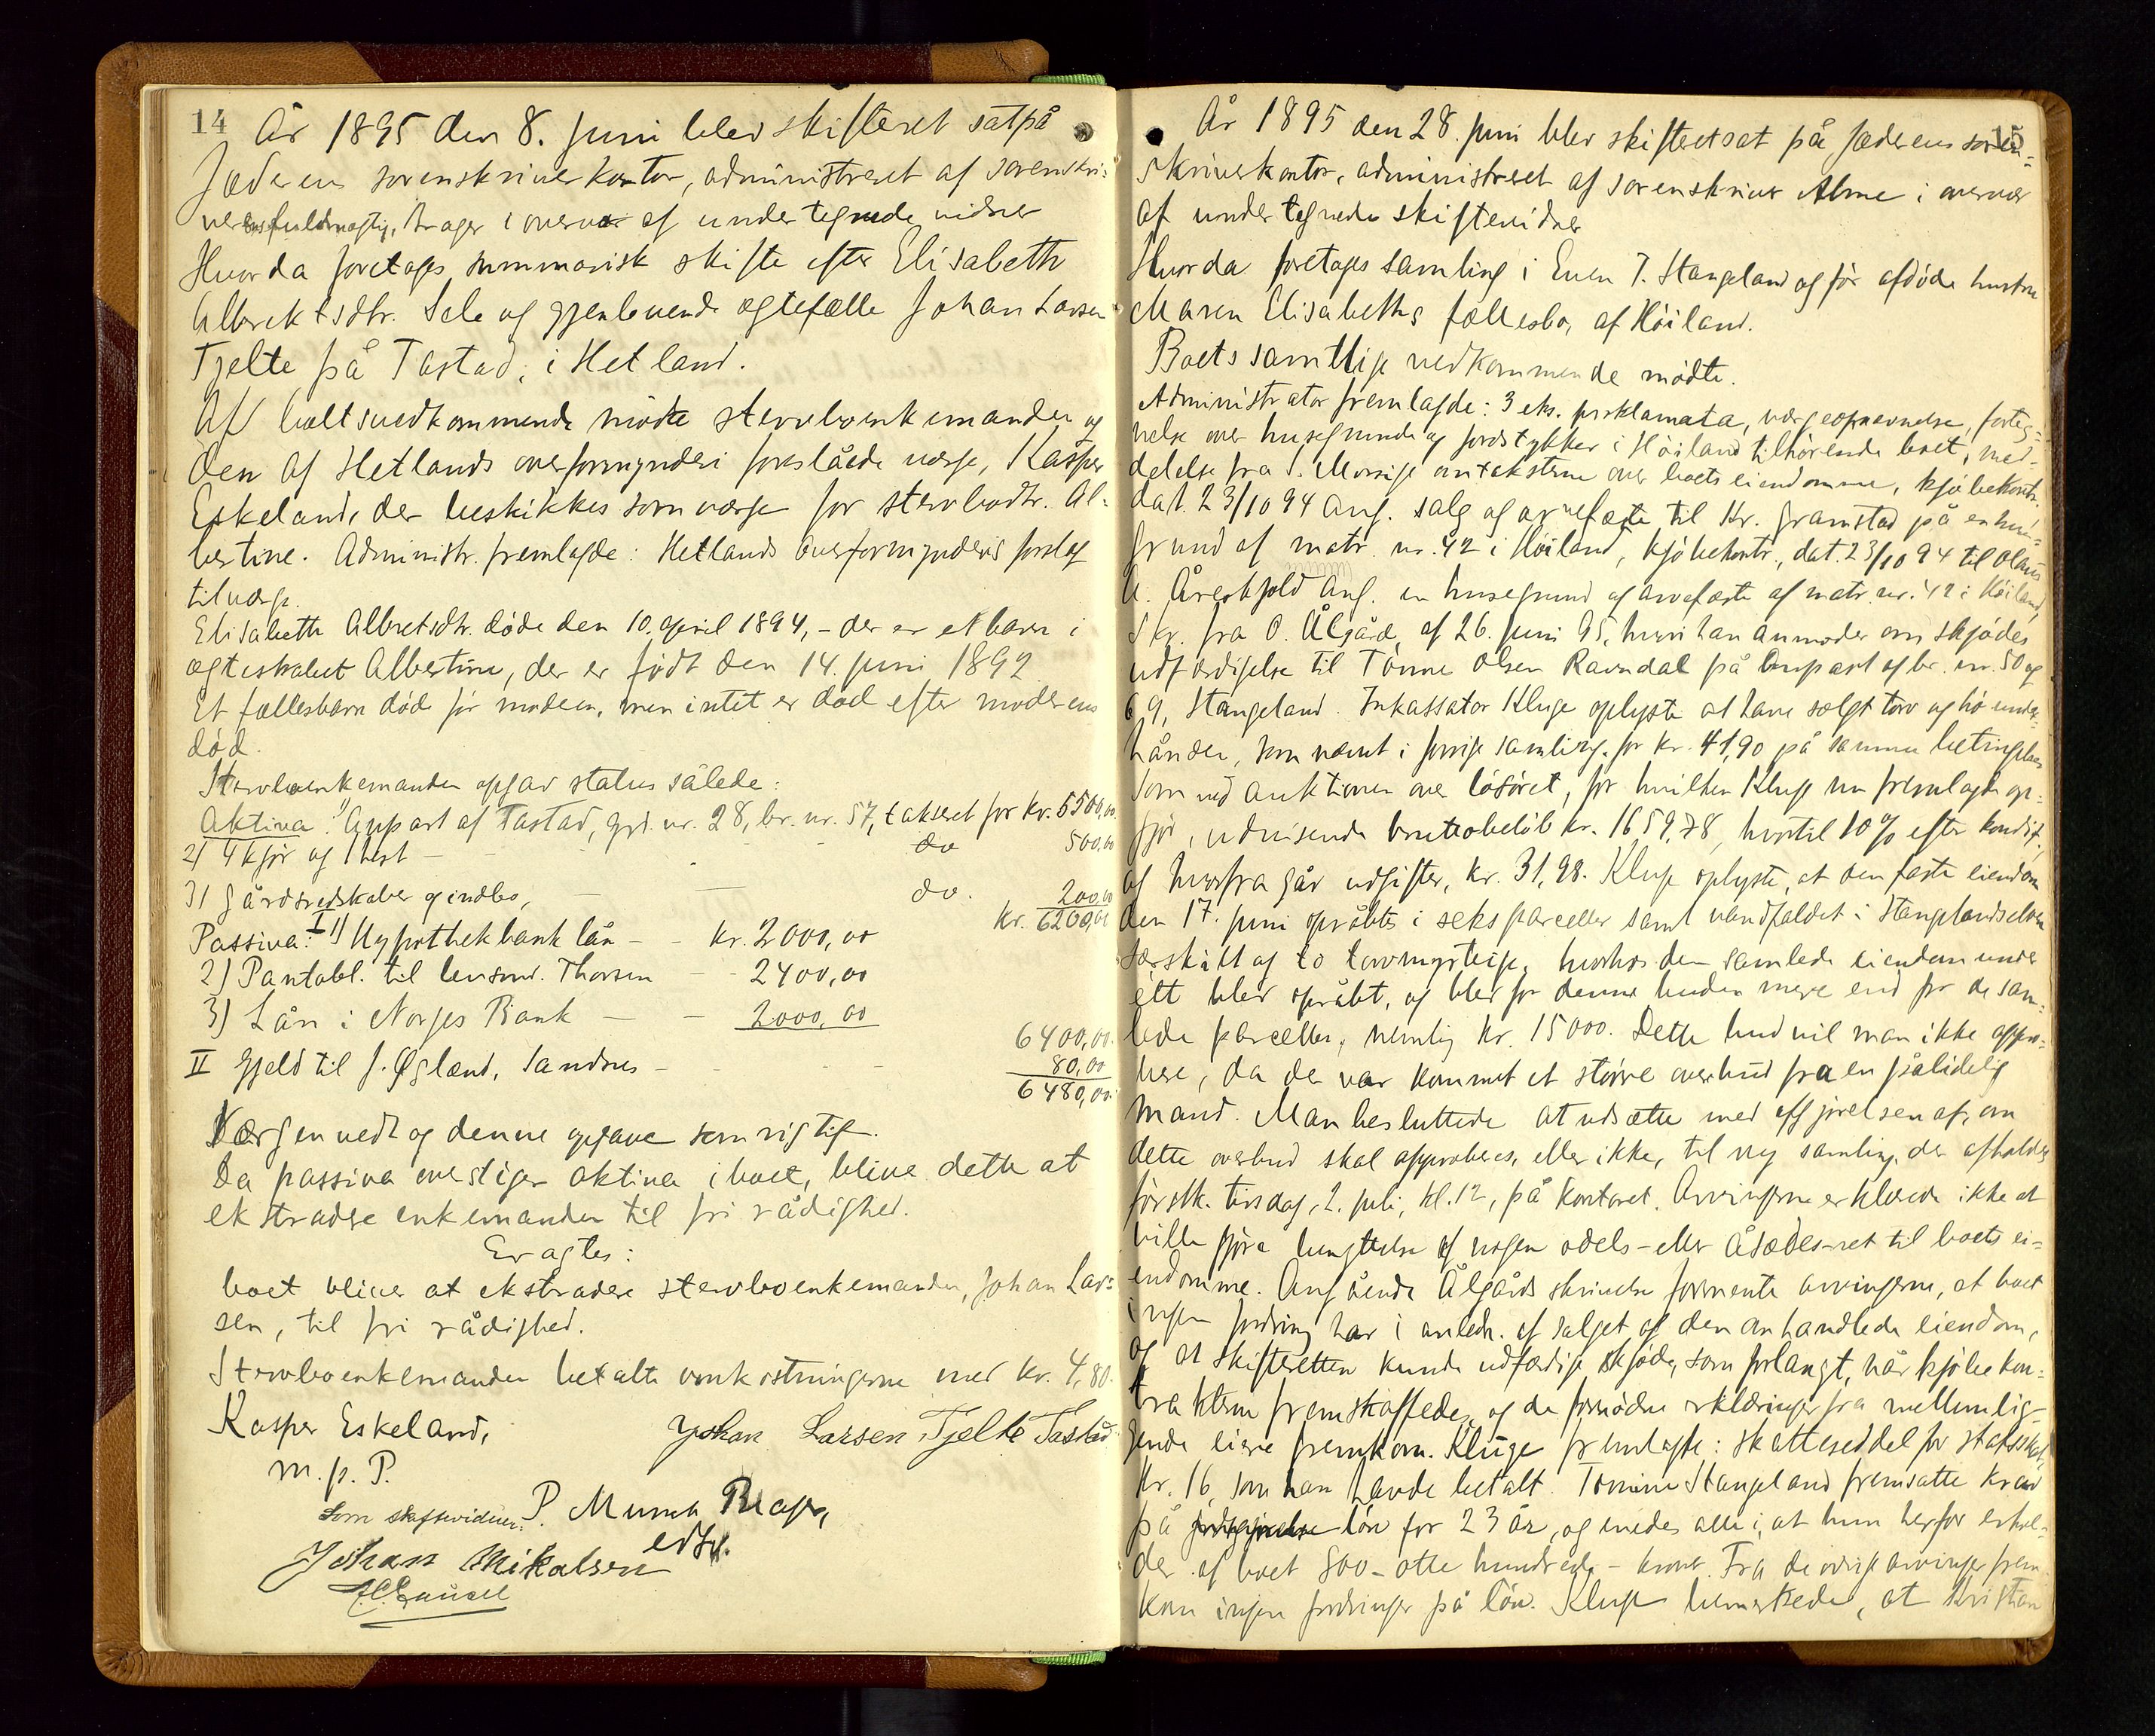 14
År 1895 den 8. juni blev skifteret sat på
Jæderens sorenskriverkontor, administreret af sorenskri-
verens fuldmægtig, Brager i overvær af undertegnede vidner
Hvorda foretages summarisk skifte efter Elisabeth
Albrektsdtr. Sele og gjenlevende ægtefælle Johan Larsen
Tjelte på Tastad, i Hetland.
Af boets vedkommende mødte stervboenkemanden og
den af Hetlands overformynderi foreslåede værge, Kasper
Eskeland, der beskikkes som værge for stervbodtr. Al-
bertine. Administr. fremlagde: Hetlands overformynderis forslag
til værge.
Elisabeth Albretsdtr. døde den 10. april 1894, - der er et barn i
ægteskabet Albertine, der er født den 14. juni 1892
Et fællesbarn døde før moderen, men intet er død efter moderens
død.
Stervboenkemanden opgav status således:
Aktiva: 1) Anpart af Tastad, grd. nr. 28, br. nr. 57, takseret for kr. 5500,00
2) 4 kjør og 1 hest - do 500,00
3) Gårdsredskaber og indbo, - do. 200,00
kr. 6200,00
Passiva: I 1) Hypothekbanklån - - kr. 2000,00
2) Pantobl. til lensmd. Thorsen - - 2400,00
3) Lån i Norges Bank - - 2000,00
6400,00
II Gjeld til J. Øglænd, Sandnes - - - 80,00
6480,00
Værgen vedtog denne opgave som rigtig.
Da passiva overstiger aktiva i boet, bliver dette at
ekstradere enkemanden til fri rådighed.
Eragtes:
boet bliver at ekstradere stervboenkemanden, Johan Lar-
sen, til fri rådighed.
Stervboenkemanden betalte omkostningerne med kr. 4,80.
Kasper Eskeland, Johan Larsen Tjelte Tastad
m. p. P.
Som skiftevidner: P. Munch Brager,
edsv.
Johan Mikalsen
15
År 1895 den 28. juni blev skifteret sat på Jæderens soren-
skriverkontor, administreret af sorenskriver Alme i overvær
af undertegnede skiftevidner
Hvorda foretages samling i Even T. Stangeland og før afdøde hustru
Maren Elisabeths fællesbo, af Höiland.
Boets samtlige vedkommende mødte.
Administrator fremlagde: 3 eks. proklamata, værgeopnævnelse, forteg-
nelse over husegrunde og jordstykker i Höiland tilhörende boet, med-
delelse fra S. Morsige om taksterne over boets eiendomme, kjöbekontr.
dat. 23/10 94 ang. salg og arvefæste til Kr. Gramstad på en hus-
grund af matr. nr. 42 i Höiland, kjöbekontr., dat. 23/10 94 til Olaus
A. Åreskjold ang. en husegrund og arvefæste af matr. nr. 42 i Höiland,
Skr. fra O. Ålgård, af 26. juni 95, hvori han anmoder om skjödes
udfærdigelse til Tönne Olsen Ravndal på anpart af br. nr. 50 og
69, Stangeland. Inkassator Kluge oplyste at have solgt torv og hö under-
hånden, som nævnt i forrige samling, for kr. 41,90 på samme betingelser
som ved auktionen over lösöret, for hvilken Kluge nu fremlagde op-
gjör, udvisende bruttobelöb kr. 1659,78, hvortil 10% efter kondit.,
og hvorfra går udgifter, kr. 31,98. Kluge oplyste, at den faste eiendom
den 17. juni opråbtes i seks parceller samt vandfaldet i Stangelandselven
særskilt og to torvmyrteige, hvorhos den samlede eiendom under
ett blev opråbt, og blev for denne buden mere end for de sam-
lede parceller, nemlig kr. 15000. Dette bud vil man ikke appro-
bere, da der var kommet et större overbud fra en pålidelig
mand. Man besluttede at udsætte med afgjörelsen af, om
dette overbud skal approberes, eller ikke, til ny samling, der afholdes
förstk. tirsdag, 2. juli, kl. 12, på kontoret. Arvingerne erklærede ikke at
ville gjöre benyttelse af nogen odels- eller åsædesret til boets ei-
endomme. Angående Ålgårds skrivelse formente arvingerne, at boet
ingen fordring har i anledn. af salget af den omhandlede eiendom,
og at skifteretten kunde udfærdige skjöde, som forlangt, når kjöbekon-
trakterne fremskaffedes, og de fornödne erklæringer fra mellemlig-
gende eiere fremkom. Kluge fremlagde: skatteseddel for statsskat,
kr. 16, som han havde betalt. Tomine Stangeland fremsatte krav
på lön for 23 år, og enedes alle i, at hun herfor erhol-
der af boet 800 - otte hundrede - kroner. Fra de övrige arvinger frem-
kom ingen fordringer på lön. Kluge bemærkede, at Kristian